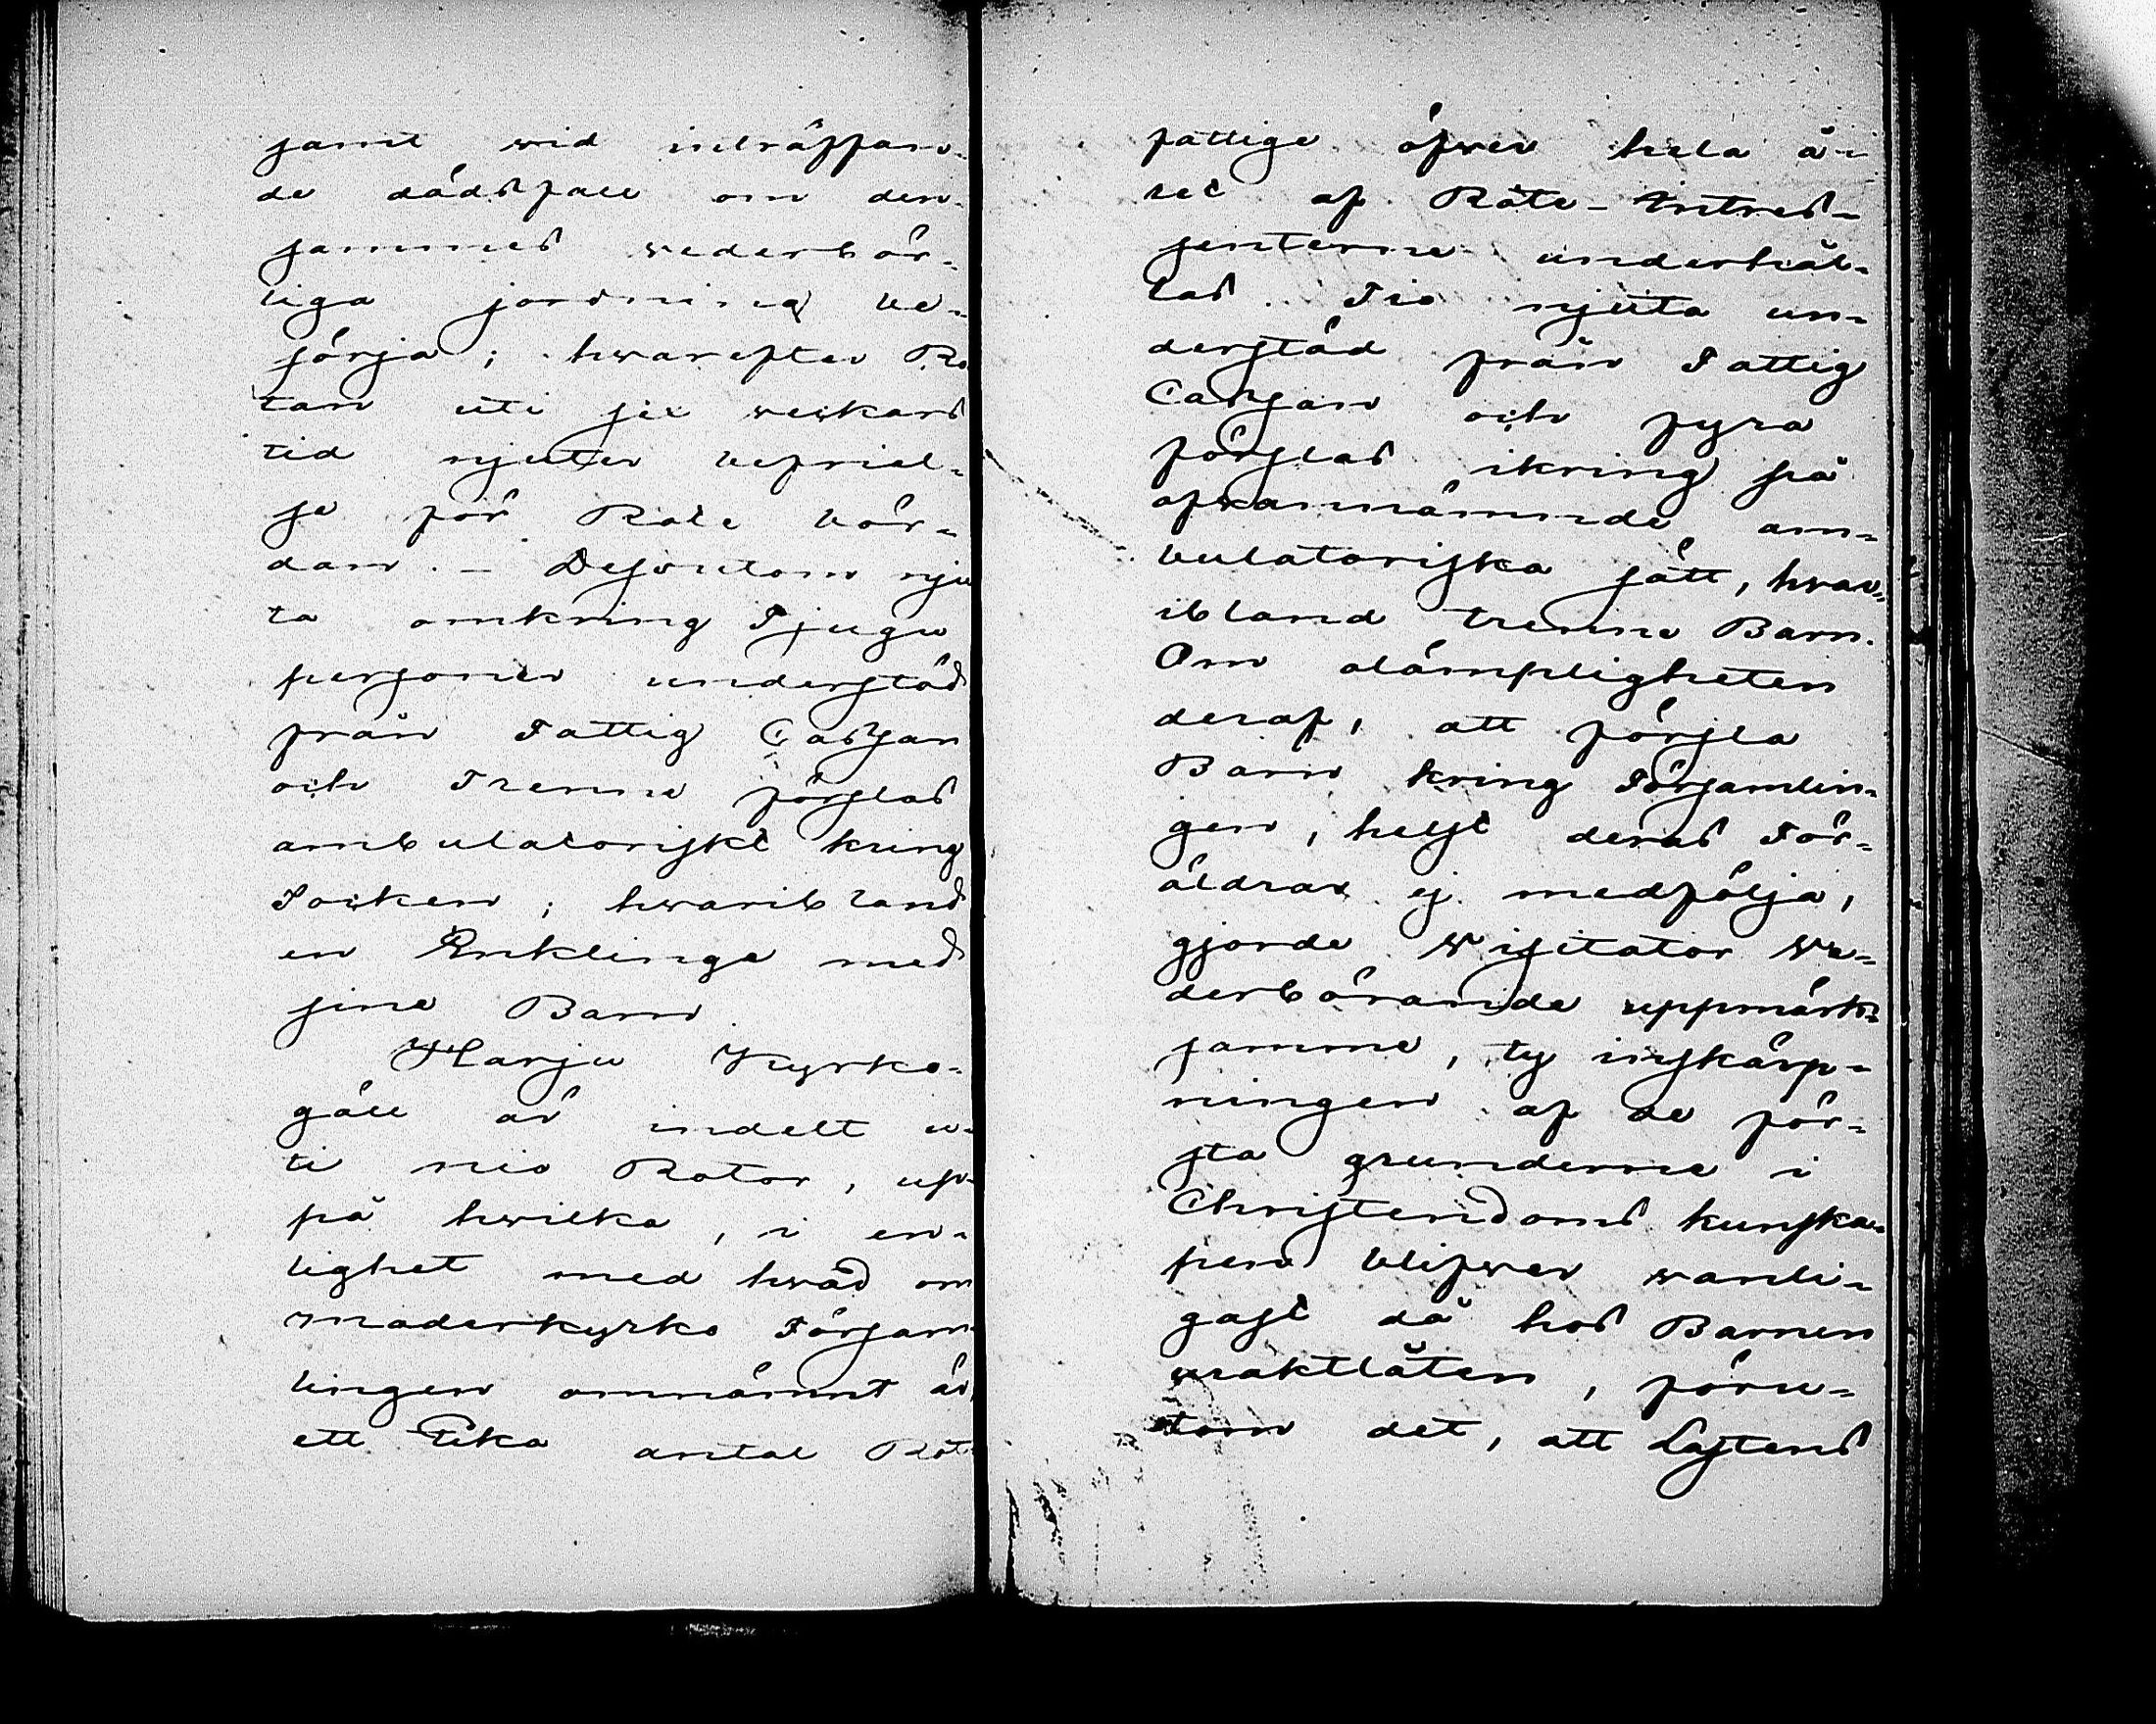 samt wid inträffan-
de dödsfall om den-
sammes wederbör-
liga jordning be-
sörja; hwarefter Ro
tan uti sex weckors
tid njuter befriel-
se för Rote bör-
dan. – Dessutom nju
ta omkring Tjugu
personer understöd
från Fattig Cassan
och Trenne förslas
ambulatoriskt kring
Socken; hwaribland
en Enklinge med
sine Barn.
Harju Kyrko-
gäll är indelt u-
ti nio Rotor, up-
på hwilka, i en-
lighet med hwad om
moderkyrko Försam-
lingen omnämnt är,
ett lika antal Rot
fattige öfwer hela å-
ret af Rote-Intres-
senterne underhål-
las. Tio njuta un-
derstöd från Fattig
Cassan och fyra
förslas ikring på
ofwannämnde am-
bulatoriska sätt, hwar-
ibland trenne Barn.
Om olämpligheten
deraf, att försla
Barn kring Församlin-
gen, helst deras För-
äldrar ej medfölja,
gjorde Wisitator We-
derbörande uppmärk-
samme, ty inskärp-
ningen af de för-
sta grunderne i
Christendoms kunska-
pen blifwer wanli-
gast då hos Barnen
wraktlåten, föru-
tom det, att Lastens